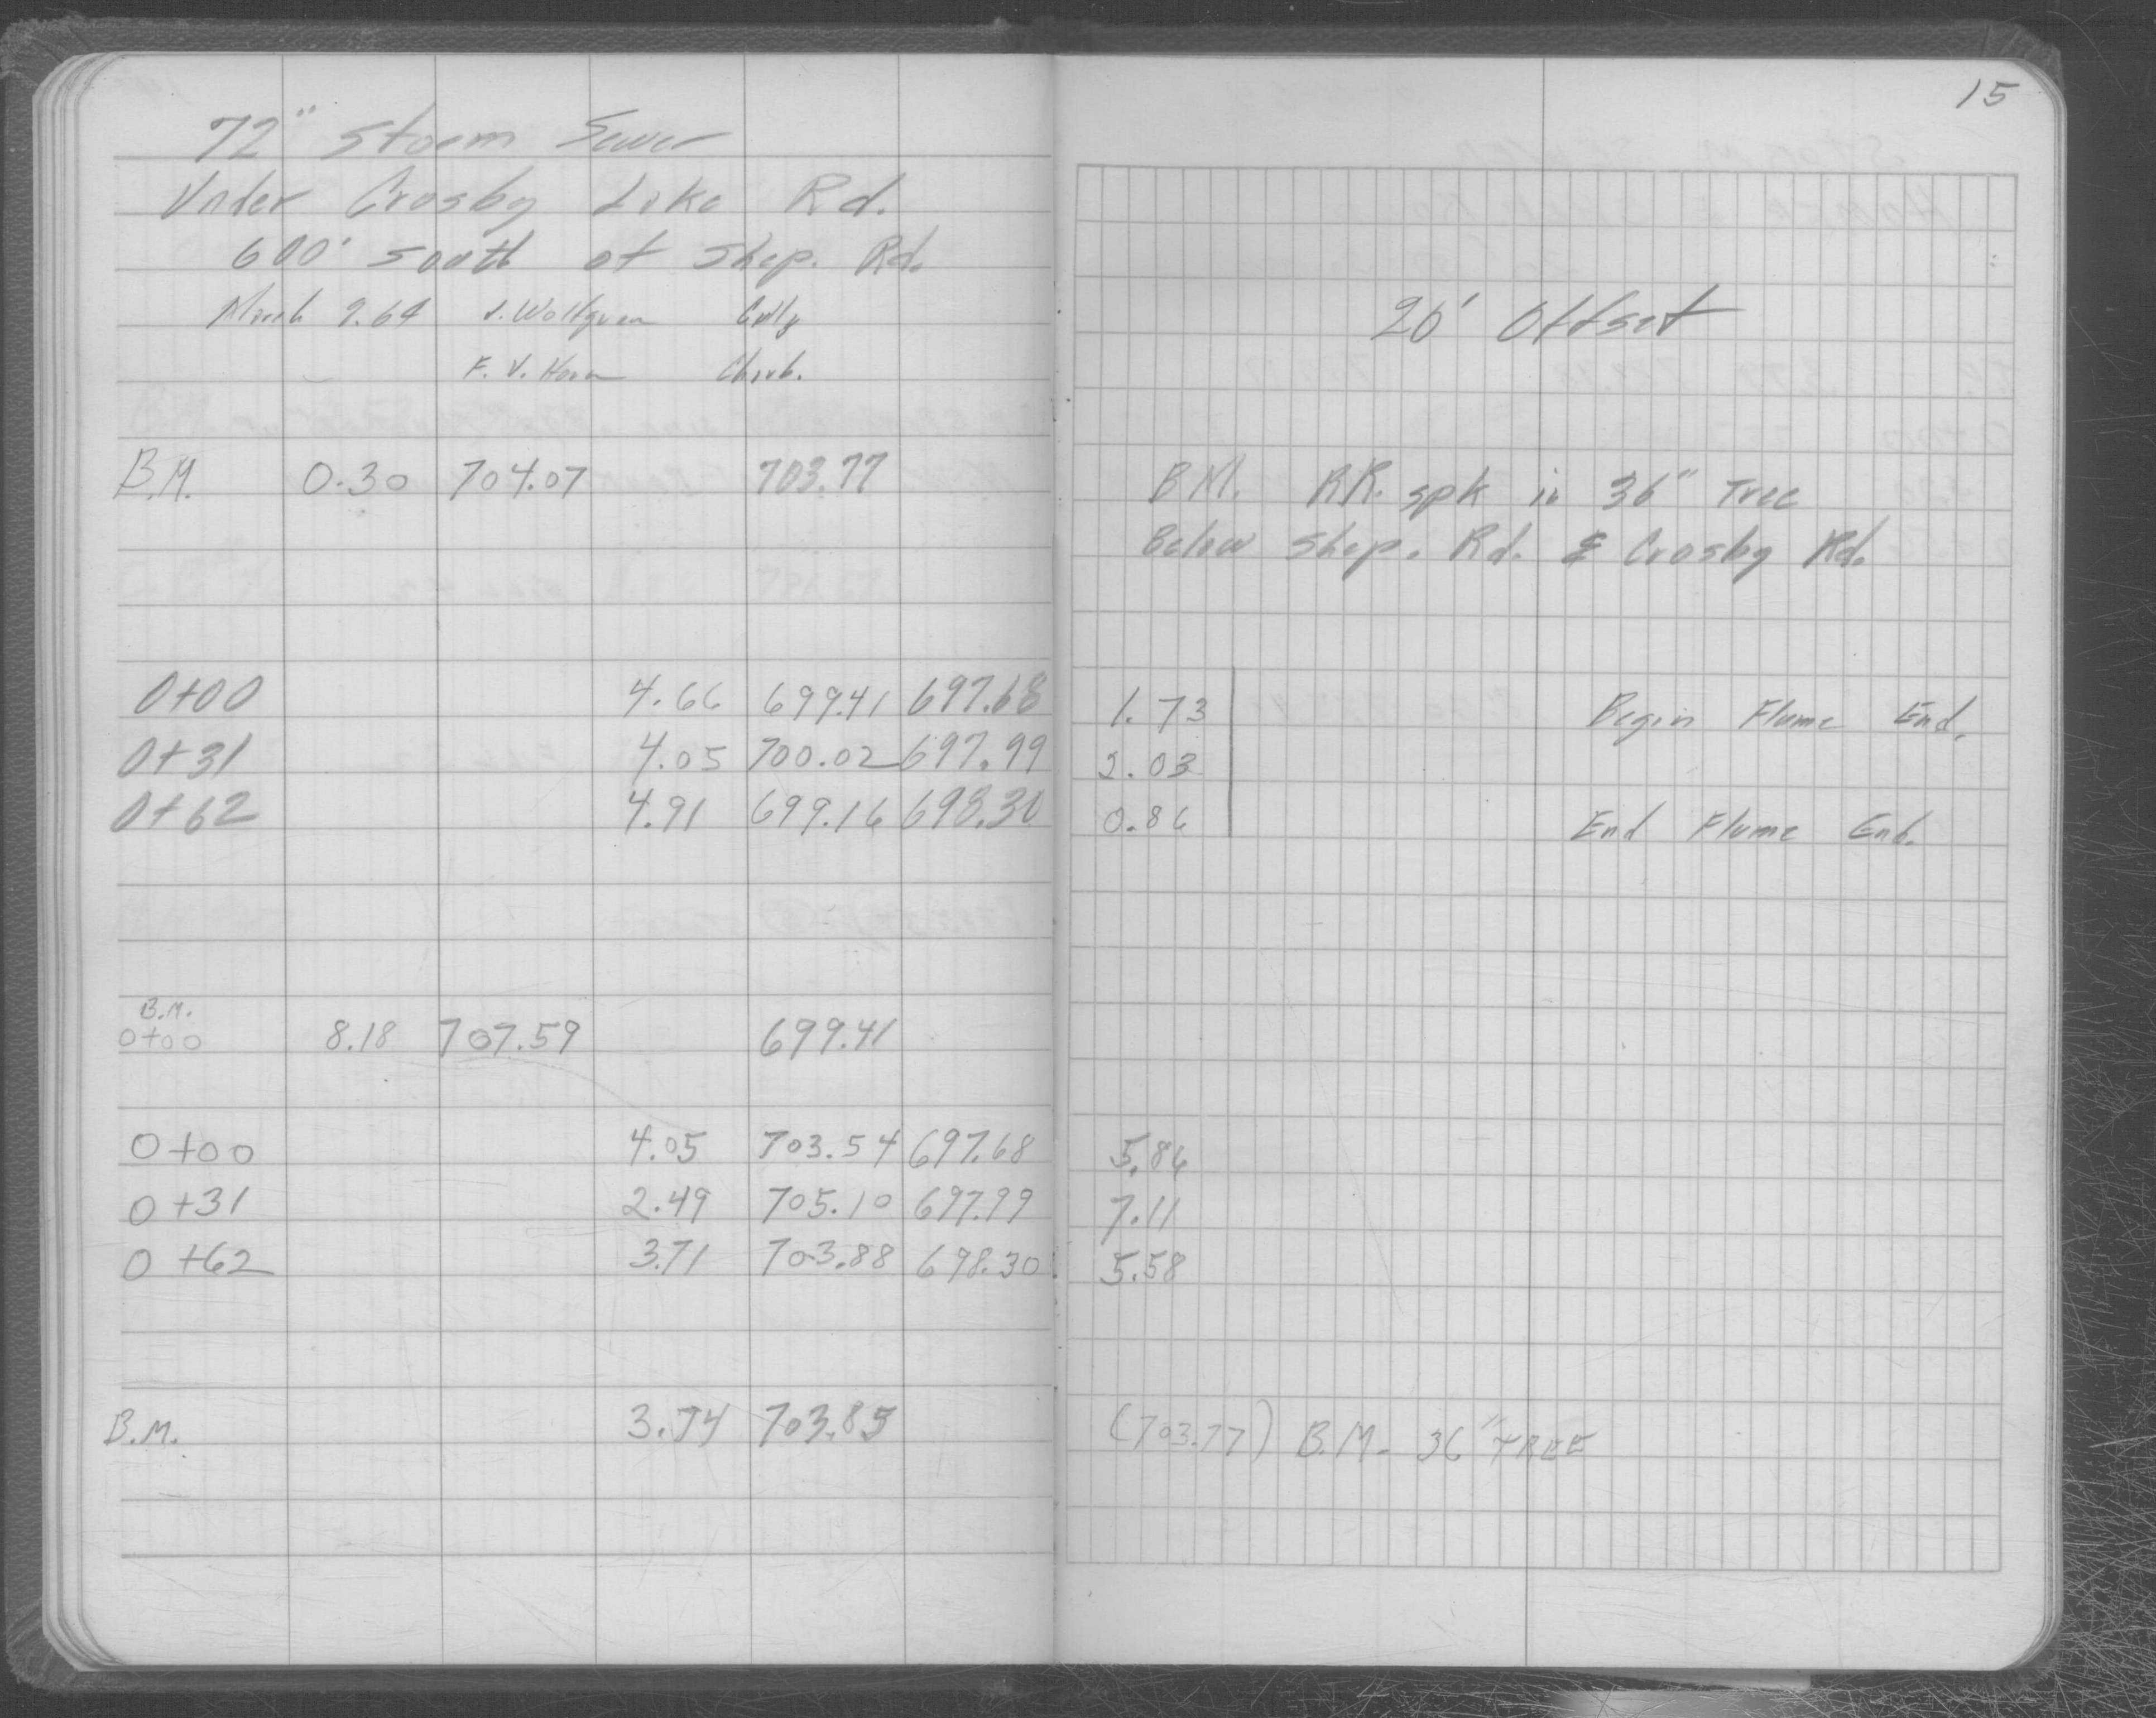 15
72" Storm Sewer
Under Crosby Lake Rd.
600' South of Shep. Rd.
March 9. 64 J. Wolfgren Cully
F. V. Horn Chrub.
20' Offset
B.M. 0.30 704.07 703.77 B M. RR. spk in 36" Tree
Below Shep. Rd. & Crosby Rd.
0+00 4.66 699.41 697.68 1.73 Begin Flume End.
0+31 4.05 700.02 697.99 2.03
0+62 4.91 699.16 698.30 0.86 End Flume End.
B.M.
0+00 8.18 707.59 699.41
0+00 4.05 703.54 697.68 5.86
0+31 2.49 705.10 697.99 7.11
0+62 3.71 703.88 698.30 5.58
B.M. 3.74 703.85 (703.77) B.M. 36" TREE